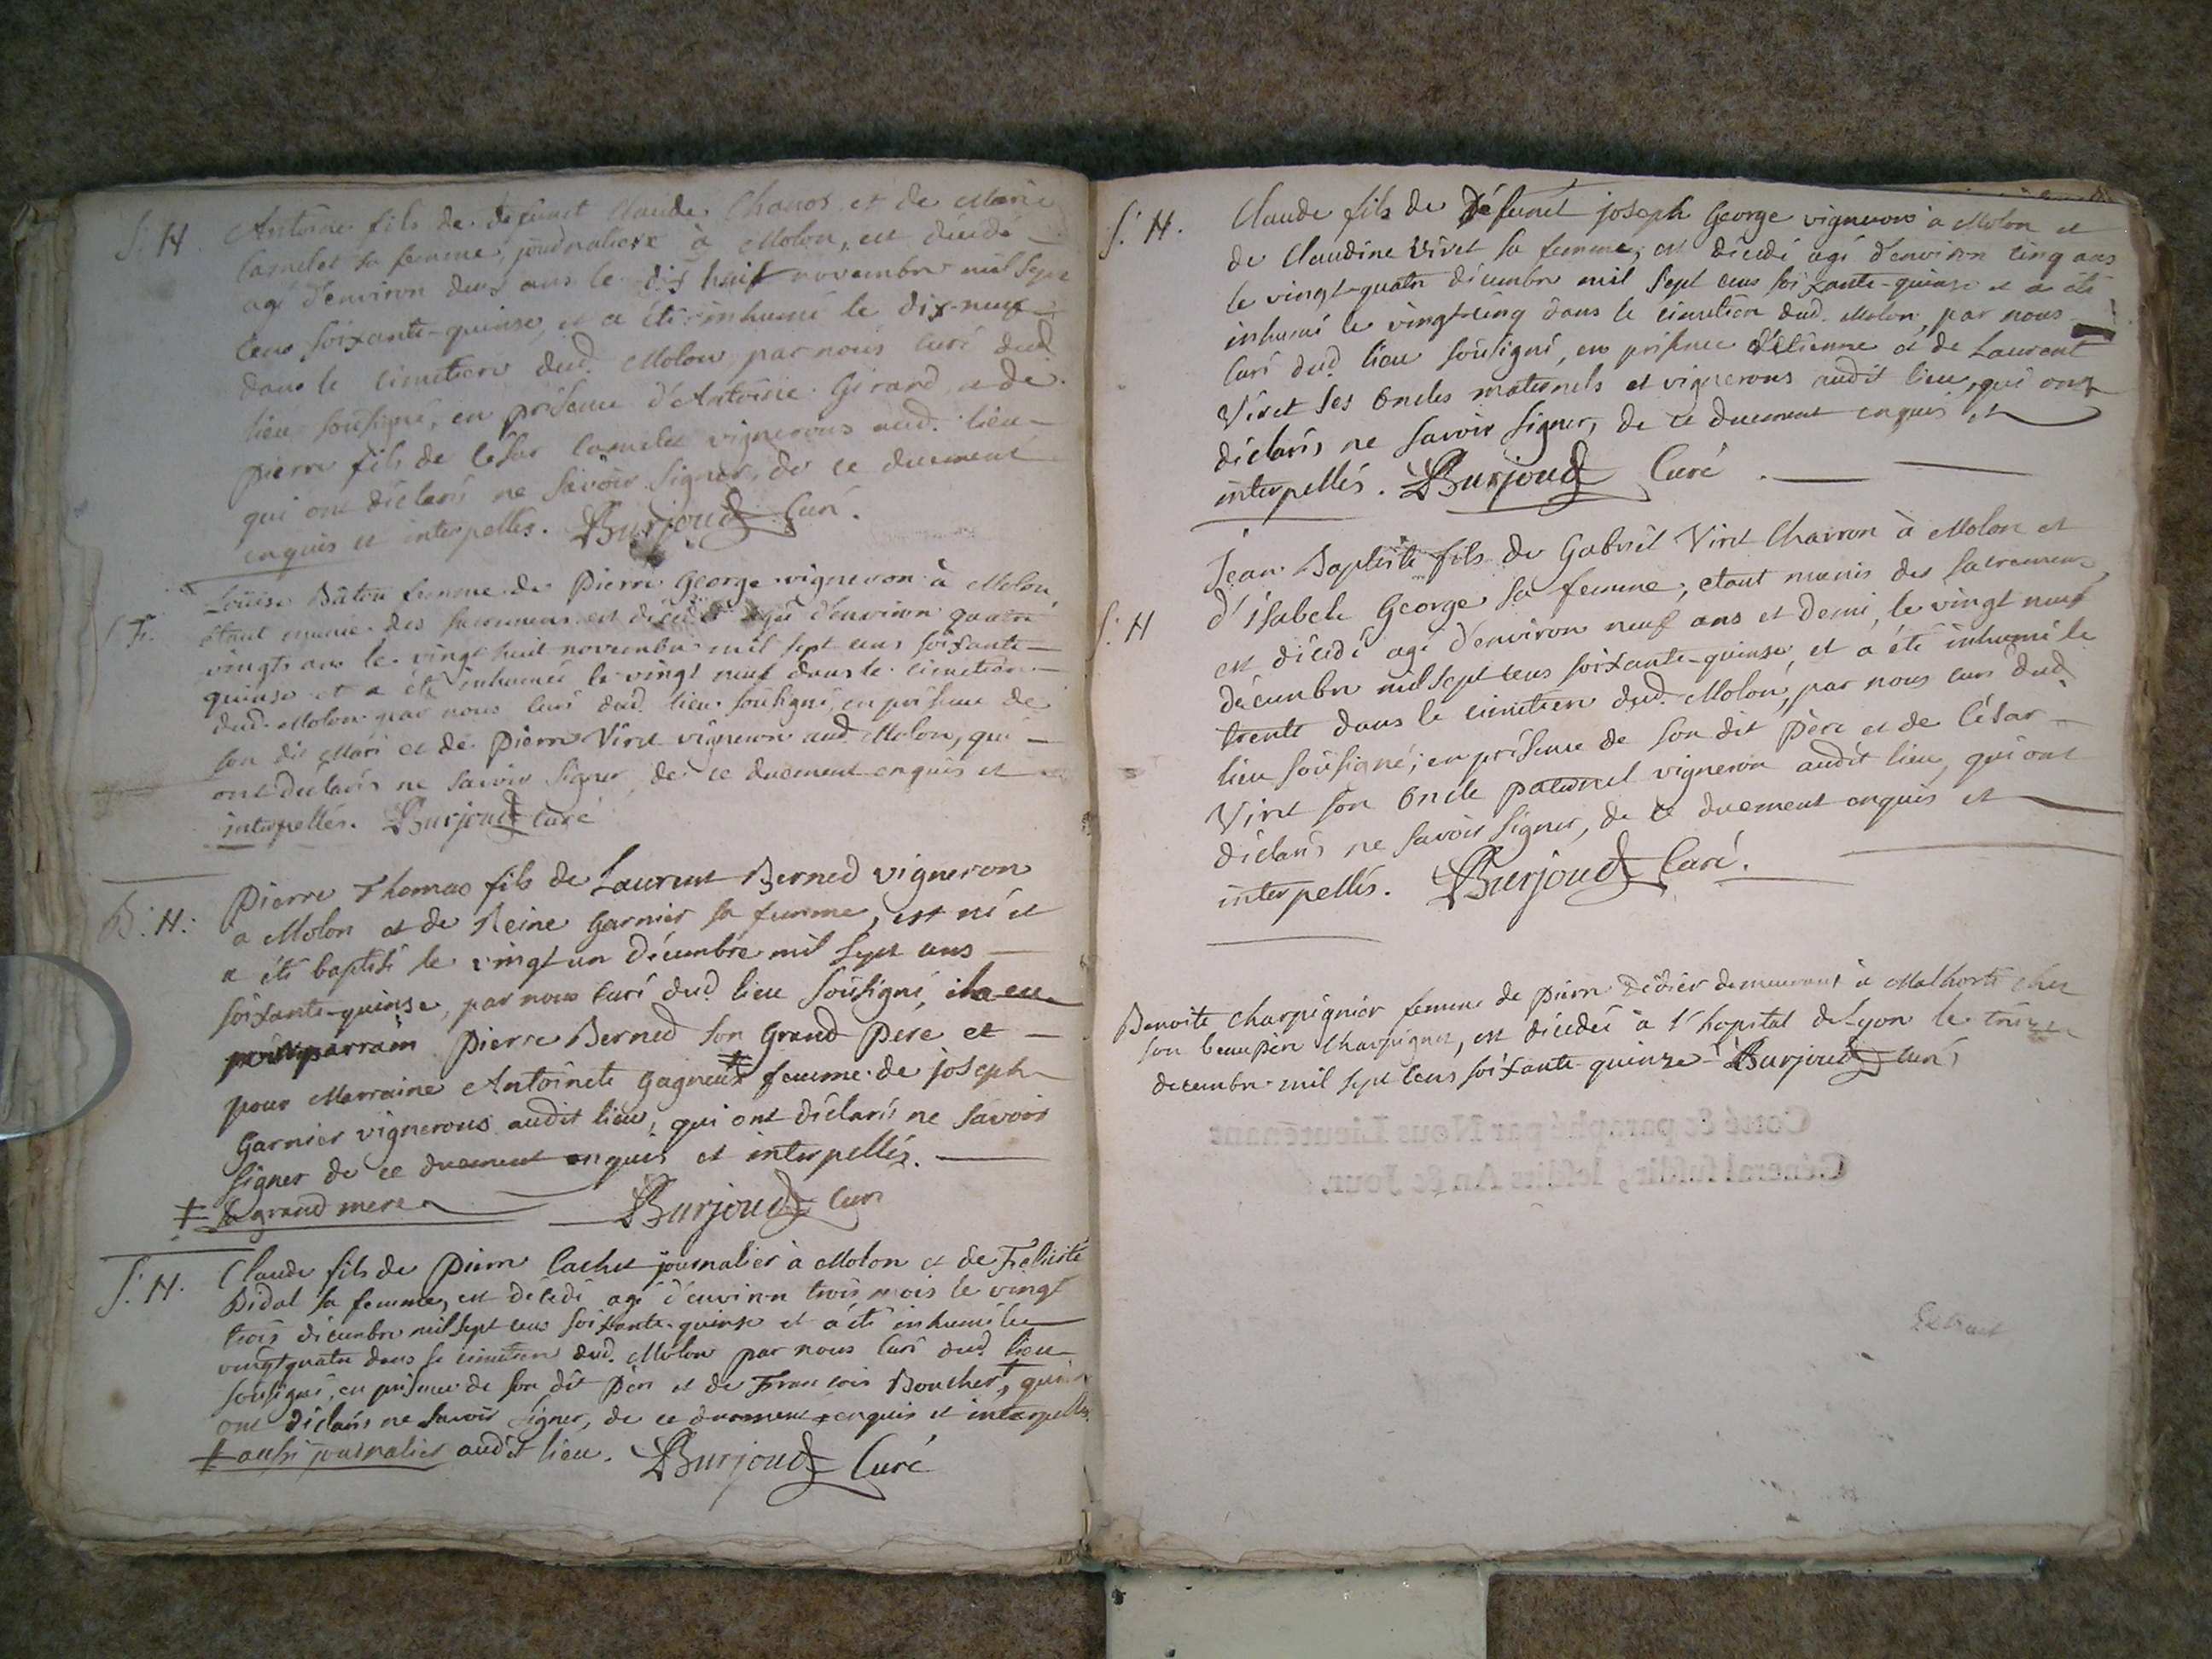 S. H. Antoine fils de défunct Claude Chanos et de Marie
Camelet sa femme, journaliere à Molon, est décédé
agé d'environ deux ans le dix huit novembre mil sept
cens soixante-quinse, et a été inhumé le dix-neuf
dans le cimetiere dud. Molon par nous curé dud.
lieu soussigné, en présence d'Antoine Girard et de
pierre fils de César Camelet vignerons aud. lieu
qui ont déclarés ne savoir signer, de ce duement
enquis et interpellés. Burjoud Curé.
S. F. Loüise Bâton femme de Pierre George vigneron à Molon,
étant munie des sacremens est décédée agée d'environ quatre
vingts ans le vingt huit novembre mil sept cens soixante
quinse et a été inhumée le vingt neuf dans le cimetiere
dud. Molon par nous curé dud. lieu soussigné, en présence de
son dit Mari et de Pierre Viret vigneron aud. Molon, qui
ont déclarés ne savoir signer, de ce duement enquis et
interpellés. Burjoud Curé
B. H. Pierre Thomas fils de Laurent Berned vigneron
a Molon et de Reine Garnier sa femme, est né et
a été baptisé le vingt un décembre mil sept cens
soixante-quinse, par nous curé dud. lieu soüsigné, il a eu
parrain pierre Berned son Grand Pére et
pour Marraine Antoinete Gagneux ‡ femme de joseph
Garnier vignerons audit lieu, qui ont déclarés ne savoir
signer de ce duement enquis et interpellés.
‡ sa grand mere Burjoud Curé
S. H. Claude fils de Pierre Cachet journalier à Molon et de Felicité
Bidal sa femme, est décédé agé d'environ trois mois le vingt
trois décembre mil sept cens soixante-quinse et a été inhumé le
vingt quatre dans le cimetiere dud. Molon par nous curé dud. lieu
sousigné, en présence de son dit pére et de François Boucher ‡, qui
ont déclarés ne savoir signer, de ce duement enquis et interpellés.
‡ aussi journalier audit lieu. Burjoud Curé
S. H. Claude fils de Défunct joseph George vigneron à Molon et
de Claudine Viret sa femme, est décédé agé d'environ cinq ans
le vingt-quatre décembre mil sept cens soixante-quinse et a été
inhumé le vingt-cinq dans le cimetiere dud. Molon, par nous
curé dud. lieu soüsigné, en présence d'Etienne et de Laurent
Viret ses Oncles maternels et vignerons audit lieu, qui ont
déclarés ne savoir signer, de ce duement enquis et
interpellés. Burjoud Curé.
Jean Baptiste fils de Gabriël Viret Charron à Molon et
S. H d'isabele George sa femme, etant munis des sacremens,
est décédé agé d'environ neuf ans et demi, le vingt neuf
décembre mil sept cens soixante-quinse, et a été inhumé le
trente dans le cimetiere dud. Molon, par nous curé dud.
lieu soüsigné, en présence de son dit pére et de César
Viret son Oncle paternel vigneron audit lieu, qui ont
déclarés ne savoir signer, de ce duement enquis et
interpellés. Burjoud Curé.
Benoite Charpignier femme de pierre Didier demeurant à Malhorti chez
son beaupere Charpignier, est décédée à l'hopital de Lyon le treize
decembre mil sept cens soixante-quinze Burjoud Curé
Cotté & paraphé par Nous Lieutenant
Géneral susdit, lesdits An & Jour.